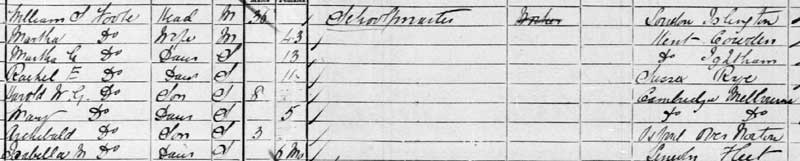 William J Foote Head M 36 1 Schoolmaster Worker London Islington
Martha Do Wife M 43 Kent Cowden
Martha G Do Daur S 13 Do Ightham
Rachel E Do Daur S 11 Sussex Rye
Harold W. G. Do Son S 8 Cambridge Melbourne
Mary Do Daur S 5 Do Do
Archibald Do Son S 3 Over Norton
Isabella M Do Daur S 6 Mo Lincoln Fleet